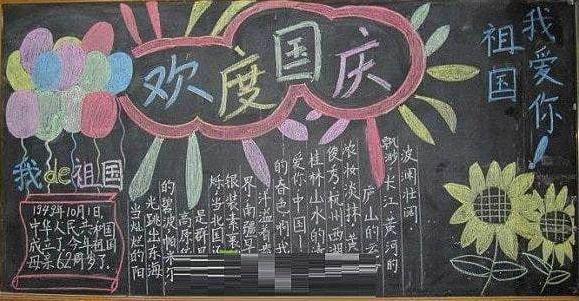 欢度国庆
我爱你!
祖国
我de祖国
1949年10月1日,
中华人民共和国
成立了,今年祖国
母亲62周岁了。
波澜壮阔.
飘渺 长江 黄河的
庐山的云
浓妆淡抹 黄
俊秀 杭州西湖
桂林山水的
爱你中国—
的春色啊我
洋溢着
界 南疆
银装素裹
烁 当北国
是群星
高原
的碧波 帕米尔
光跳出东海
当灿烂的阳